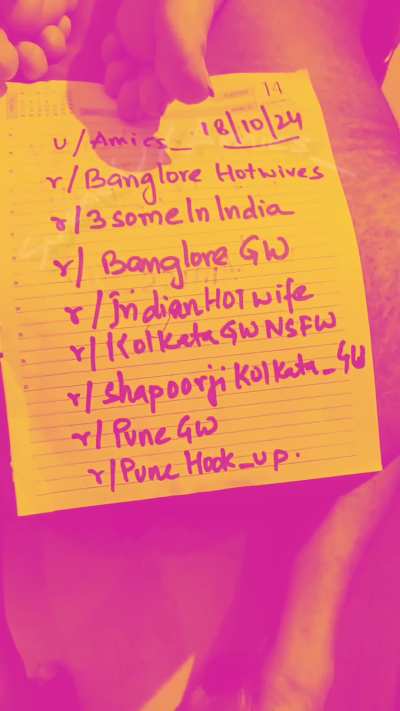 14
u/Amics_ 18/10/24
r/Banglore Hotwives
r/3someInIndia
r/ Banglore GW
r/IndianHOTwife
r/KolkataGWNSFW
r/shapoorjiKolkata_GW
r/PuneGW
r/Pune Hook_up.